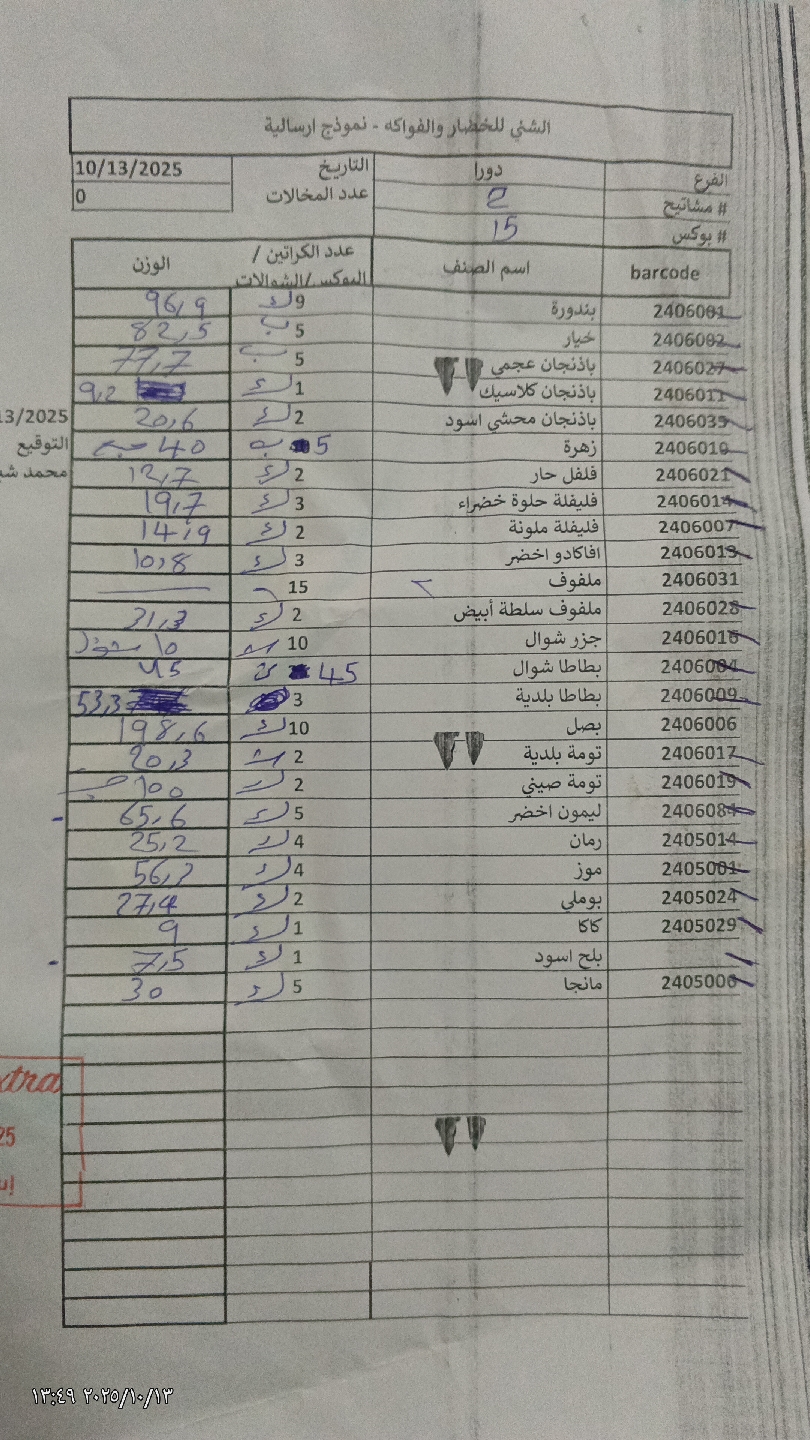 الشني للخضار والفواكه - نموذج ارسالية
الفرع دورا التاريخ 10/13/2025
# مشاتيح 2 عدد المخالات 0
# بوكس 15
barcode اسم الصنف عدد الكراتين / البوكس/الشوالات الوزن
2406001 بندورة 9 ك 96,9
2406002 خيار 5 ب 82,5
2406027 باذنجان عجمي 5 ب 77,7
2406011 باذنجان كلاسيك 1 ك 9,2
2406035 باذنجان محشي اسود 2 ك 20,6
2406010 زهرة 5 ب 40
2406021 فلفل حار 2 ك 12,7
2406014 فليفلة حلوة خضراء 3 ك 19,7
2406007 فليفلة ملونة 2 ك 14,9
2406013 افاكادو اخضر 3 ك 10,8
2406031 ملفوف 15
2406028 ملفوف سلطة أبيض 2 ك 31,3
2406016 جزر شوال 10 10
2406004 بطاطا شوال 45 45
2406009 بطاطا بلدية 3 53,3
2406006 بصل 10 ك 198,6
2406017 تومة بلدية 2 20,3
2406019 تومة صيني 2 ك 100
2406084 ليمون اخضر 5 ك 65,6
2405014 رمان 4 ك 25,2
2405001 موز 4 ك
2405024 بوملي 2 ك 27,4
2405029 كاكا 1 ك 9
بلح اسود 1 ك 7,5
2405006 مانجا 5 ك 30
13/2025
التوقيع
محمد
xtra
25
١٣:٤٩ ٢٠٢٥/١٠/١٣